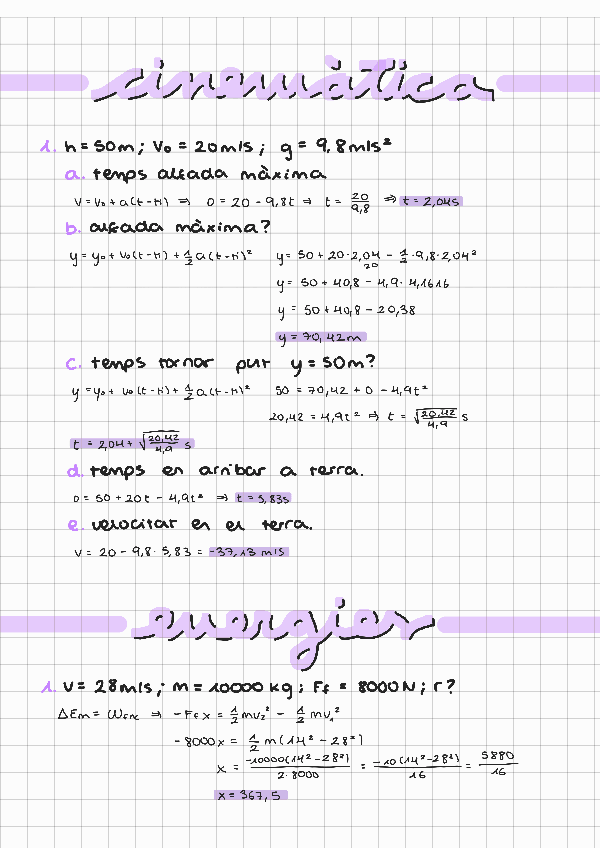 cinemàtica
1. h = 50m; V₀ = 20m/s; g = 9,8m/s²
a. temps alçada màxima
V = V₀ + a(t - t₁) ⇒ 0 = 20 - 9,8t ⇒ t = 20/9,8 ⇒ t = 2,04s
b. alçada màxima?
y = y₀ + V₀(t - t₁) + 1/2 a(t - t₁)² y = 50 + 20·2,04 - 1/2·9,8·2,04²
20
y = 50 + 40,8 - 4,9·4,1616
y = 50 + 40,8 - 20,38
y = 70,42m
c. temps tornar put y = 50m?
y = y₀ + V₀(t - t₁) + 1/2 a(t - t₁)² 50 = 70,42 + 0 - 4,9t²
20,42 = 4,9t² ⇒ t = √(20,42/4,9) s
t = 2,04 + √(20,42/4,9) s
d. temps en arribar a terra.
0 = 50 + 20t - 4,9t² ⇒ t = 5,83s
e. velocitat en el terra.
V = 20 - 9,8·5,83 = -37,13 m/s
energies
1. V = 28m/s; m = 10000kg; Ff = 8000N; r?
ΔEm = WFNC ⇒ -Ff x = 1/2 mv₂² - 1/2 mv₁²
-8000x = 1/2 m(14² - 28²)
x = -10000(14² - 28²)/2·8000 = -10(14² - 28²)/16 = 5880/16
x = 367,5